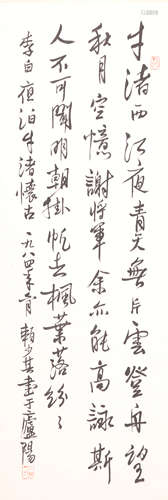 牛渚西江夜青天無片雲登舟望
秋月空憶謝將軍余亦能高詠斯
人不可聞明朝掛帆去楓葉落紛〻
李白夜泊牛渚懷古 一九八四年 賴少其書于廬陽